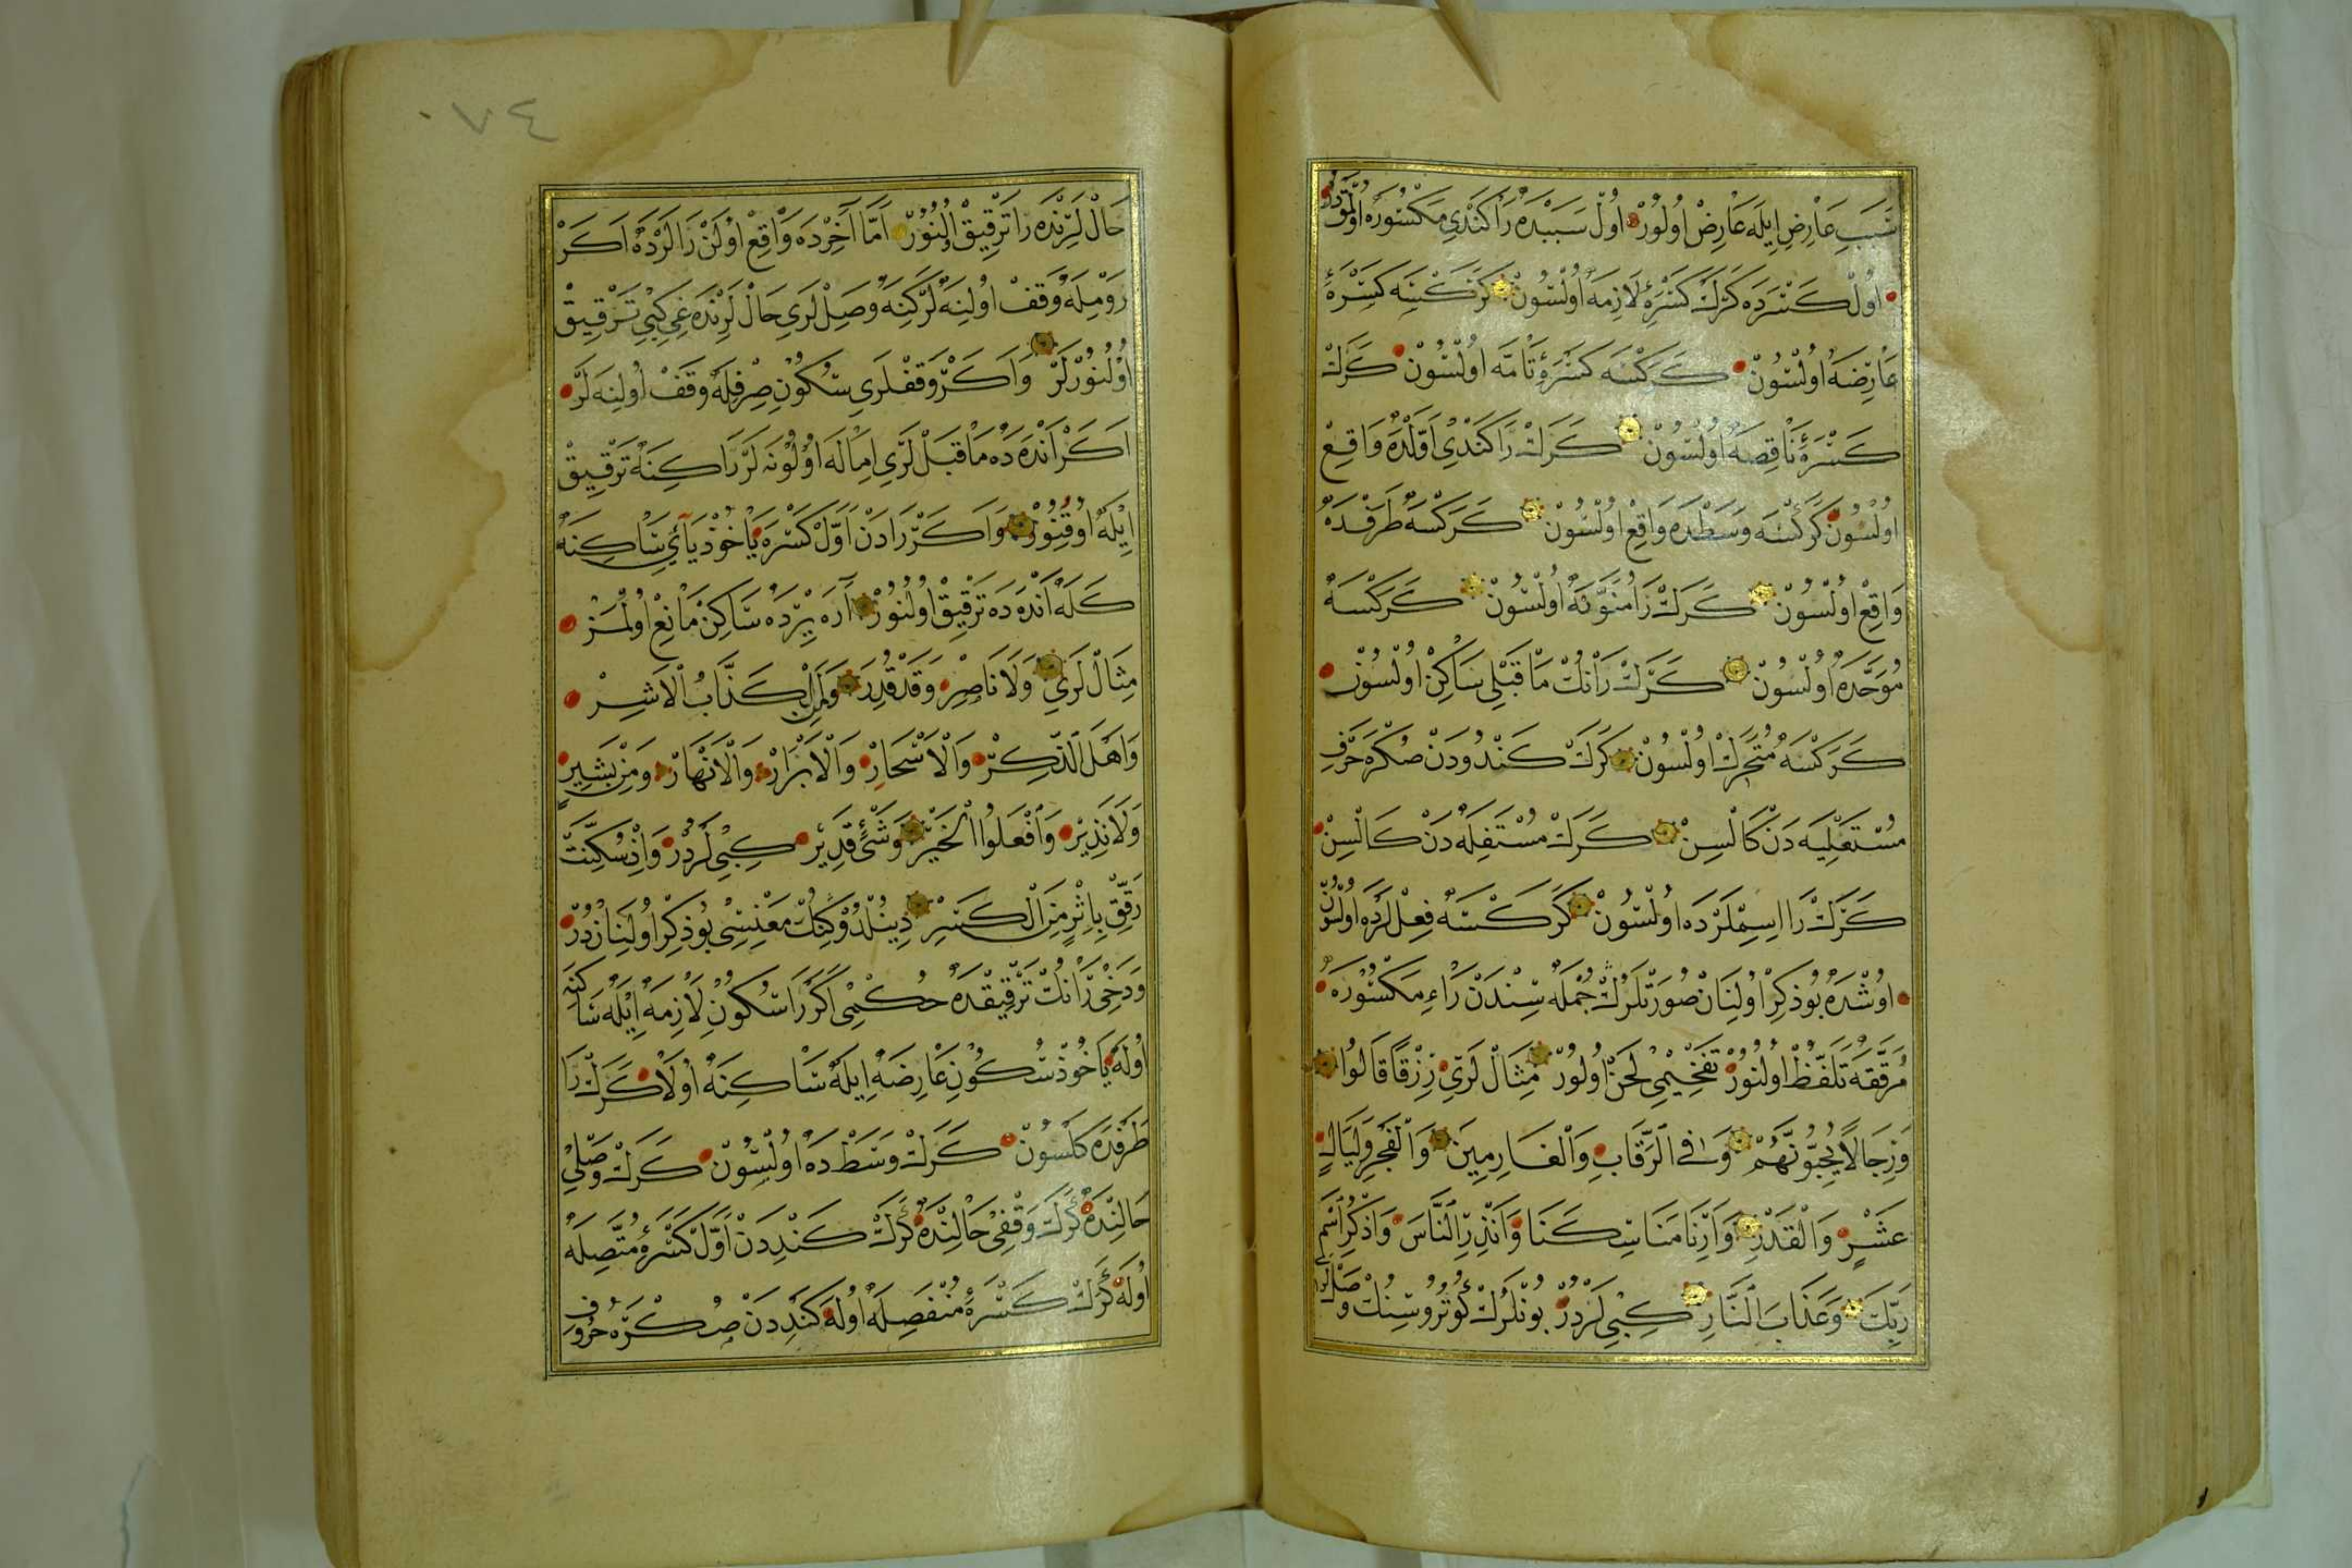 سَبَبِ عَارِضِ اِيلَه عَارِضْ اُولُورْ اُولْ سَبَبْدَه رَا كَنْدِي مَكْسُورَه اُولْمَقْدُرْ
اُولْ كَسْرَدَه كَرَكْ كَسْرَۀِ لَازِمَه اُولْسُونْ كَرَكْسَه كَسْرَۀِ
عَارِضَه اُولْسُونْ كَرَكْسَه كَسْرَۀِ تَامَّه اُولْسُونْ كَرَكْ
كَسْرَۀِ نَاقِصَه اُولْسُونْ كَرَكْ رَا كَنْدِي اَوَّلْدَه وَاقِعْ
اُولْسُونْ كَرَكْسَه وَسَطْدَه وَاقِعْ اُولْسُونْ كَرَكْسَه طَرَفْدَه
وَاقِعْ اُولْسُونْ كَرَكْ رَا مُنَوَّنَه اُولْسُونْ كَرَكْسَه
مُوَحَّدَه اُولْسُونْ كَرَكْ رَانُكْ مَا قَبْلِي سَاكِنْ اُولْسُونْ
كَرَكْسَه مُتَحَرِّكْ اُولْسُونْ كَرَكْ كَنْدُودَنْ صُكْرَه حَرْفِ
مُسْتَعْلِيَه دَنْ كَالْسِنْ كَرَكْ مُسْتَفِلَه دَنْ كَالْسِنْ
كَرَكْ رَا اِسِمْلَرْدَه اُولْسُونْ كَرَكْسَه فِعِلْلَرْدَه اُولْسُونْ
اُوشْدَه بُو ذِكِرْ اُولِنَانْ صُورَتْلَرُكْ جُمْلَه سِنْدَنْ رَاءِ مَكْسُورَه
مُرَقَّقَه تَلَفُّظْ اُولُنُورْ تَفْخِيمِي لَحَنْ اُولُورْ مِثَالْ لَرِي رِزْقًا قَالُوا
وَرِجَالًا يُحِبُّونَهُمْ وَفِي الرِّقَابِ وَالْغَارِمِينَ وَالْفَجْرِ وَلَيَالٍ
عَشْرٍ وَالْقَدْرِ وَاَرِنَا مَنَاسِكَنَا وَاَنْذِرِ النَّاسَ وَاذْكُرِ اسْمَ
رَبِّكَ وَعَذَابَ النَّارِ كِبِي لَرْدُرْ بُونْلَرُكْ كُوتُرُوسِنُكْ وَصْلْ لَرِي
حَالْ لَرِنْدَه رَا تَرْقِيقْ اُولُنُورْ اَمَّا آخِرْدَه وَاقِعْ اُولَنْ رَا لَرْدَه اَكَرْ
رَوْمِلَه وَقَفْ اُولِنَه لَرْ كِنَه وَصِلْ لَرِي حَالْ لَرِنْدَه غِي كِبِي تَرْقِيقْ
اُولُنُورْلَرْ وَاَكَرْ وَقَفْلَرِي سُكُونِ صِرْفِلَه وَقَفْ اُولِنَه لَرْ
اَكَرْ اَنْدَه دَه مَا قَبَلْ لَرِي اِمَالَه اُولُونَه لَرْ رَا كِنَه تَرْقِيقْ
اِيلَه اُوقُنُورْ وَاَكَرْ رَادَنْ اَوَّلْ كَسْرَه يَاخُوذْ يَآئِ سَاكِنَه
كَلَه اَنْدَه دَه تَرْقِيقْ اُولُنُورْ آرَه يِرْدَه سَاكِنْ مَانِعْ اُولْمَزْ
مِثَالْ لَرِي وَلَا نَاصِرٍ وَقَدْ قُدِرَ وَمَنِ الْكَذَّابُ الْاَشِرْ
وَاَهْلَ الذِّكِرْ وَالْاَسْحَارْ وَالْاَبْرَارْ وَالْاَنْهَارْ وَمِنْ بَشِيرٍ
وَلَا نَذِيرْ وَافْعَلُوا الْخَيْرْ وَشَىْءٍ قَدِيرْ كِبِي لَرْدُرْ وَاِذْ سُكِّنَتْ
رَقِّقْ بِاِثْرٍ مِنَ الْكَسْرِ دِينُلْدُوكِنُكْ مَعْنِسِي بُو ذِكِرْ اُولِنَانْدُرْ
وَدَخِي رَانُكْ تَرْقِيقْدَه حُكْمِي اَكَرْ رَا سُكُونِ لَازِمَه اِيلَه سَاكِنَه
اُولَه يَاخُوذْ سُكُونِ عَارِضَه اِيلَه سَاكِنَه اُولَا كَرَكْ رَا
طَرَفْدَه كَلْسُونْ كَرَكْ وَسَطْ دَه اُولْسُونْ كَرَكْ وَصْلِي
حَالِنْدَه كَرَكْ وَقْفِي حَالِنْدَه كَرَكْ كَنْدِدَنْ اَوَّلْ كَسْرَۀِ مُتَّصِلَه
اُولَه كَرَكْ كَسْرَۀِ مُنْفَصِلَه اُولَه كَنْدِدَنْ صُكْرَه حُرُوفِ
٠٧٤